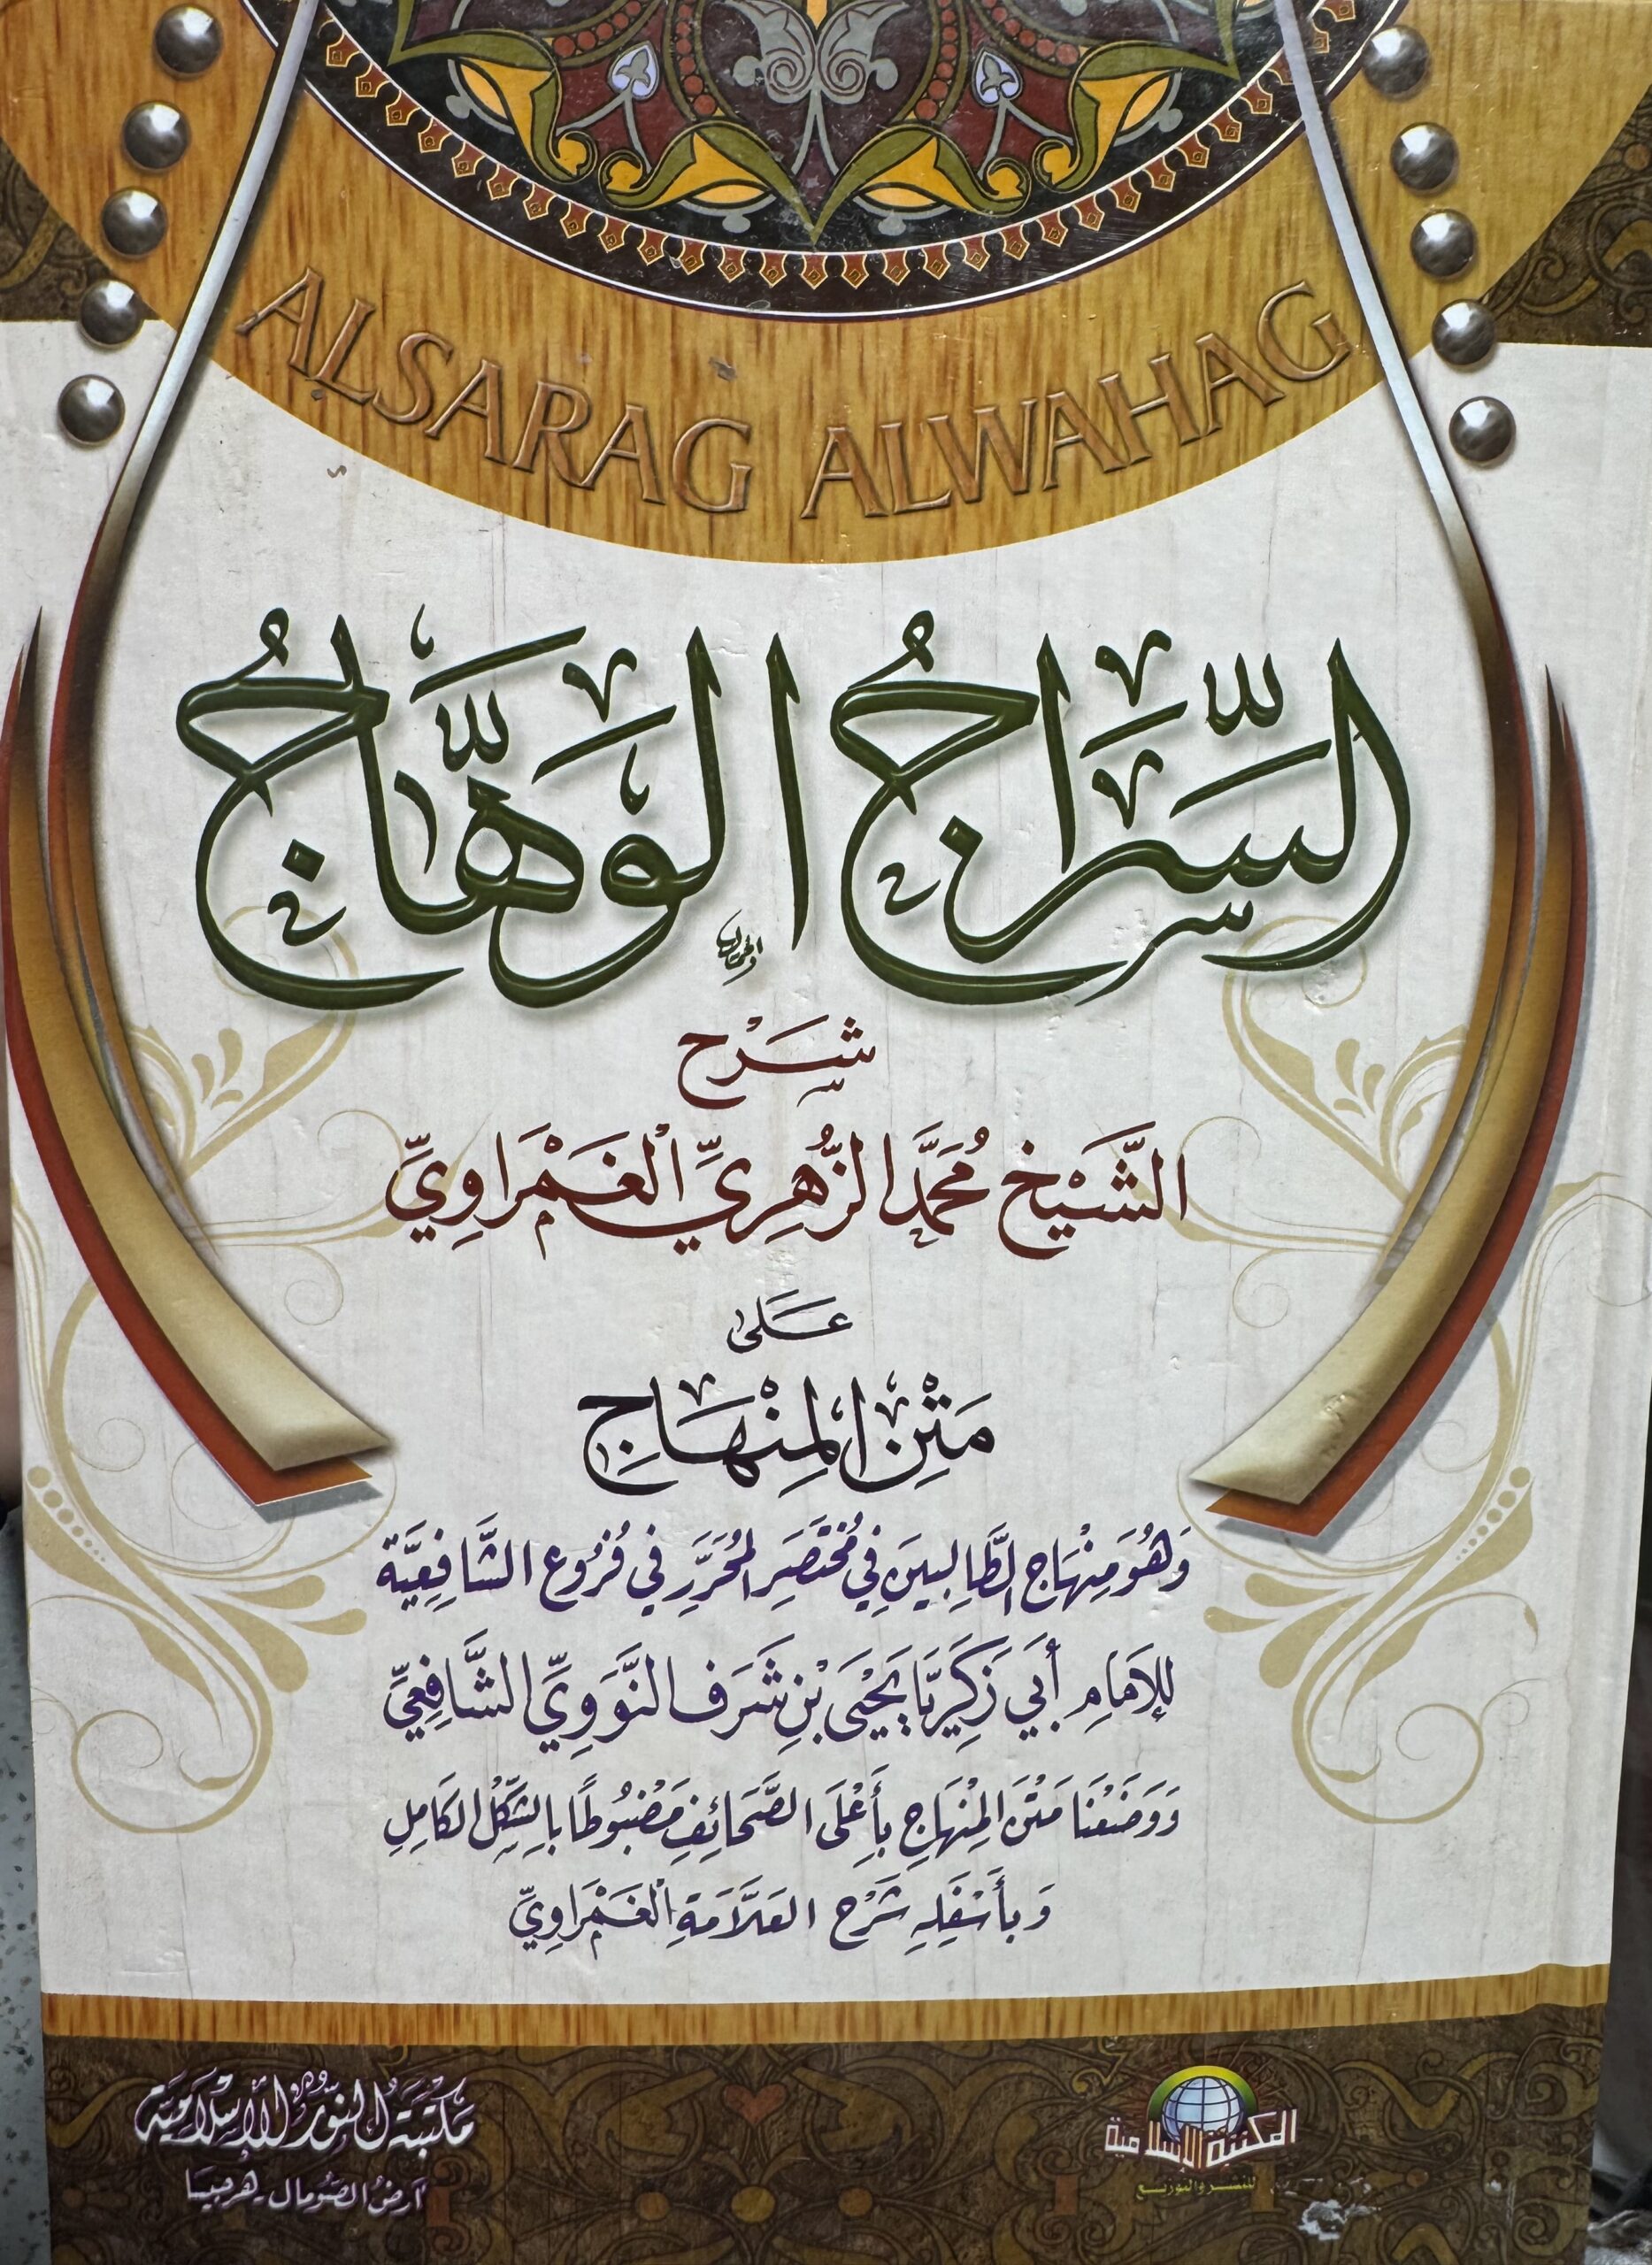 ALSARAG ALWAHAG
السِّرَاجُ الوَهَّاجُ
شَرْح
الشَّيْخ مُحَمَّد الزُّهرِيِّ الْغَمْرَاوِيِّ
عَلَى
مَتْنِ الْمِنْهَاجِ
وَهُوَ مِنْهَاج الطَّالِبِينَ فِي مُخْتَصَرِ الْمُحَرَّرِ فِي فُرُوع الشَّافِعِيَّة
لِلإمَامِ أَبِي زَكَرِيَّا يَحْيَى بْنِ شَرَف النَّوَوِيِّ الشَّافِعِيِّ
وَوَضَعْنَا مَتْنَ الْمِنْهَاجِ بِأَعْلَى الصَّحَائِفِ مَضْبُوطًا بِالشَّكْلِ الكَامِلِ
وَبِأَسْفَلِهِ شَرْحُ العَلَّامَةِ الْغَمْرَاوِيِّ
المكتبة الإسلامية
للنشر والتوزيع
مَكْتَبَةُ النُّورُ الإِسْلَامِيَّة
أرضُ الصُّومال - هرجيسا